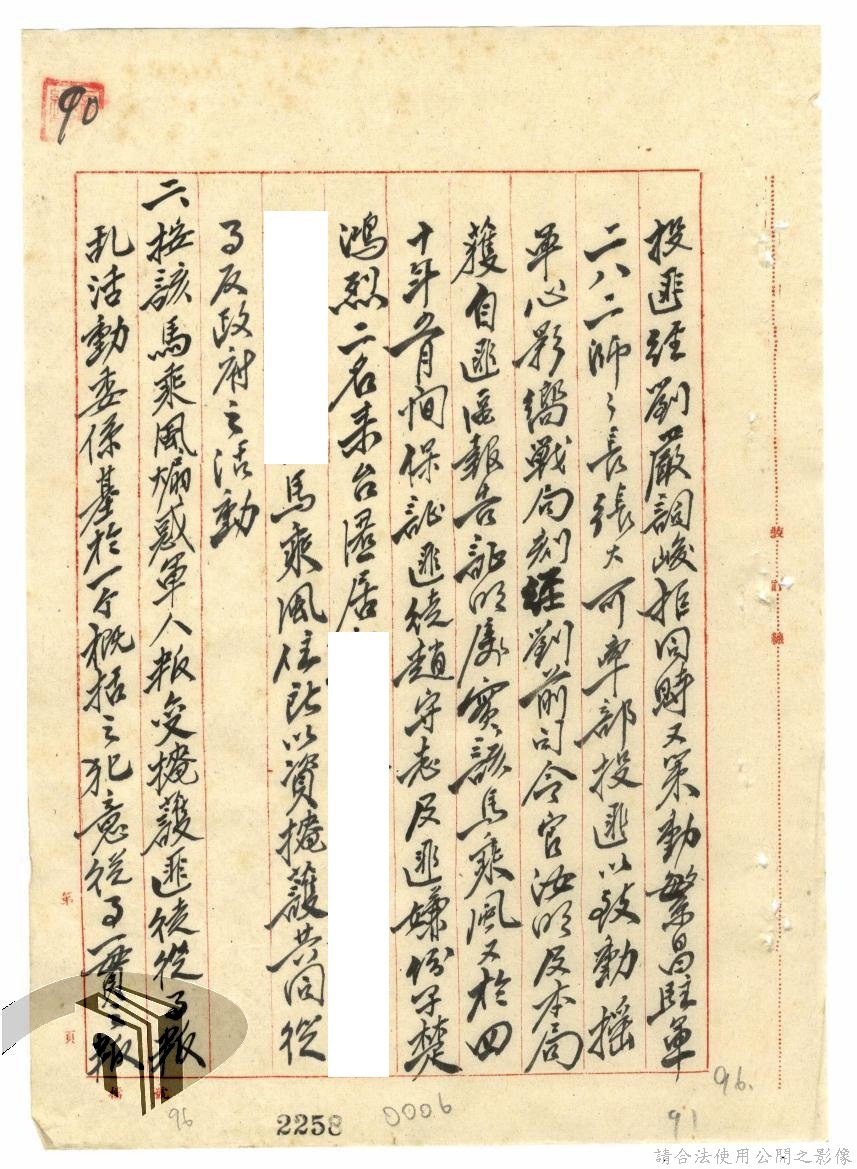 90
投匪經劉嚴詞峻拒同時又策動繁昌駐軍
二八二師〻長張大可率部投匪以致動搖
軍心影嚮戰局刻經劉前司令官汝明及本局
獲自匪區報告証明屬實該馬乘風又於四
十年五月間保証匪徒趙守志及匪嫌份子楚
鴻烈二名来台匿居
馬乘風住所以資掩護共同從
事反政府之活動
二按該馬乘風煽惑軍人叛变掩護匪徒從事叛
乱活動委係基於一个概括之犯意從事一貫之叛
裝訂線
第
頁
96.
96
2258
0006
91
請合法使用公開之影像